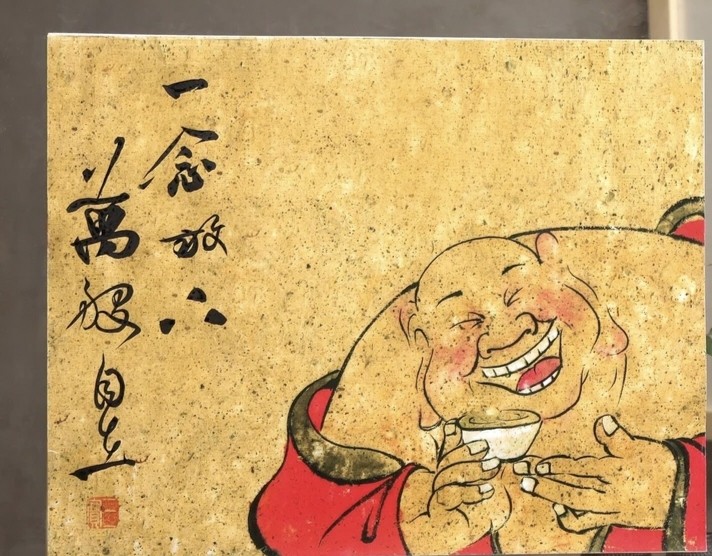 一念放下
萬般自在